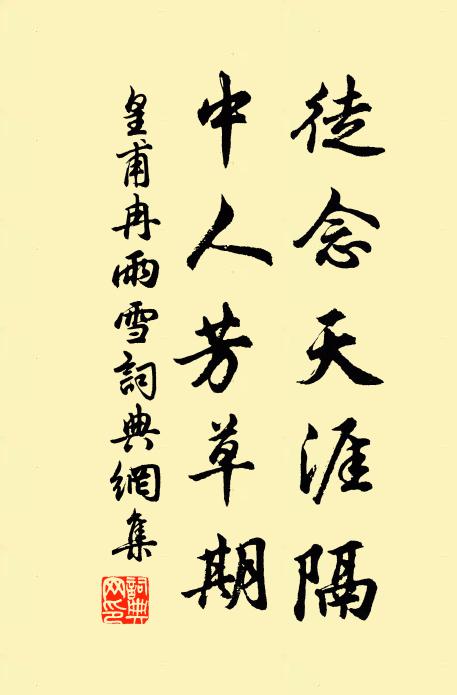 徒念天涯隔
中人芳草期
皇甫冉雨雪詞典網集
詞典網印